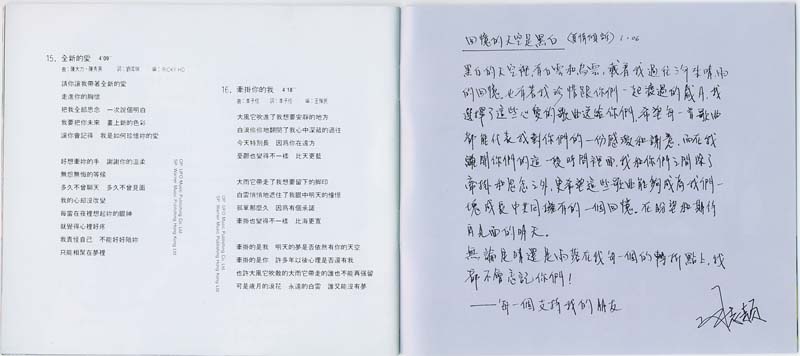 15. 全新的愛 4'09"
曲：陳大力、陳秀男 詞： 編：RICKY HO
請你讓我帶著全新的愛
走進你的胸懷
把我全部思念 一次說個明白
我要把你未來 畫上新的色彩
讓你會記得 我是如何珍惜妳的愛
好想牽妳的手 謝謝你的溫柔
無怨無悔的等候
多久不曾聊天 多久不曾見面
我的心卻沒改變
每當在夜裡想起妳的眼神
就覺得心裡好疼
我責怪自己 不能好好陪妳
只能相聚在夢裡
OP: UFO Music Publishing Co. Ltd
SP: Warner Music Publishing Hong Kong Ltd
16. 牽掛你的我 4'18"
曲：李子恆 詞：李子恆 編：
大風它吹進了我想要安靜的地方
白淚你你地翻開了我心中深藏的過往
今天特別長 因爲你在遠方
憂鬱也變得不一樣 比天更藍
大雨它帶走了我想要留下的腳印
白雲悄悄地遮住了我眼中明天的憧憬
孤單那麼久 因爲有個承諾
牽掛也變得不一樣 比海更寬
牽掛的是我 明天的夢是否依然有你的天空
牽掛的是你 許多年以後心裡是否還有我
也許大風它吹散的大雨它帶走的誰也不能再強留
可是歲月的浪花 永遠的白雲 誰又能沒有夢
OP: UFO Music Publishing Co. Ltd
SP: Warner Music Publishing Hong Kong Ltd
回憶的天空是黑白（真情傾訴）
黑白的天空裡有白雲和烏雲，載著我過往三年來晴雨
的回憶，也有著我珍惜跟你們一起渡過的歲月，我
選擇了這些心愛的歌曲送給你們，希望每一首歌曲
都能代表我對你們的一份感激和謝意，而在我
離開你們的這一段時間裡面，我和你們之間除了
牽掛和思念之外，更希望這些歌曲能夠成爲我們一
塊成長中共同擁有的一個回憶，在盼望和期待
再見面的晴天。
無論是晴還是雨，在我每一個的轉捩點上，我
都不會忘記你們！
——每一個支持我的朋友